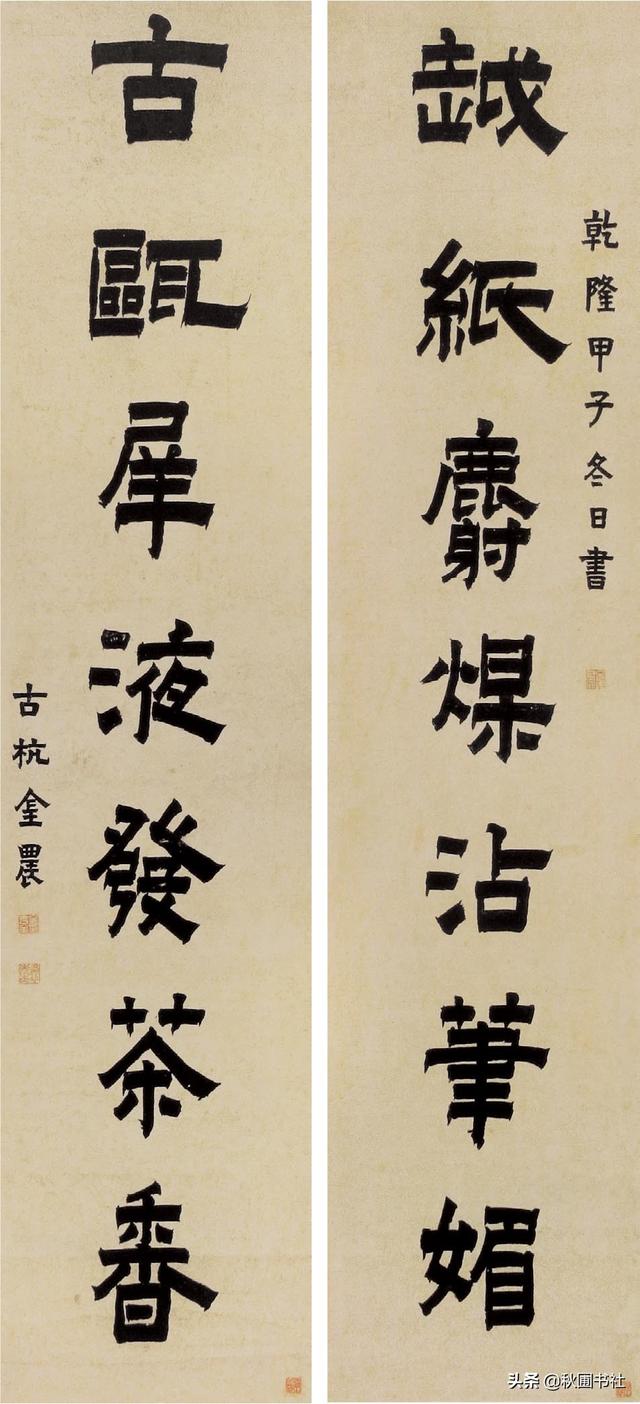 乾隆甲子冬日書
越紙麝煤沾筆媚
古甌犀液發茶香
古杭金農
头条 @秋圃书社